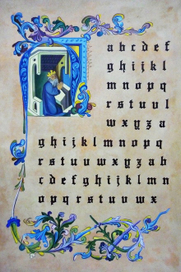 a b c d e f
g h i j k l
m n o p q
r s t u v
w x y z a
g h i j k l m n o p q
r s t u v w x y z a b
c d e f g h i j k l m n
o p q r s t u v w x